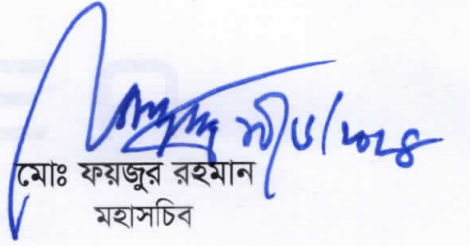 মোঃ ফয়জুর রহমান
মহাসচিব